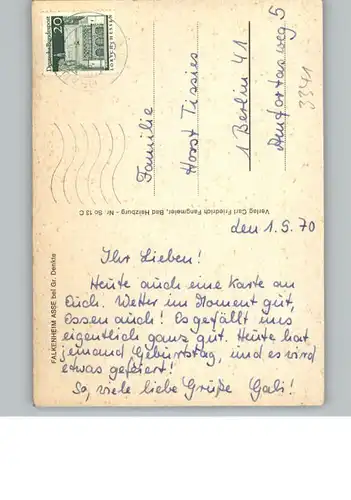 Deutsche Bundespost
20
Familie
Horst Tissies
1 Berlin 41
Amfortasweg 5
3341
Verlag Carl Friedrich Fangmeier, Bad Harzburg - Nr. So 13 C
FALKENHEIM ASSE bei Gr. Denkte
den 1.9.70
Ihr Lieben!
Heute auch eine Karte an
Euch. Wetter im Moment gut,
Essen auch! Es gefällt uns
eigentlich ganz gut. Heute hat
jemand Geburtstag, und es wird
etwas gefeiert!
So, viele liebe Grüße Gabi!